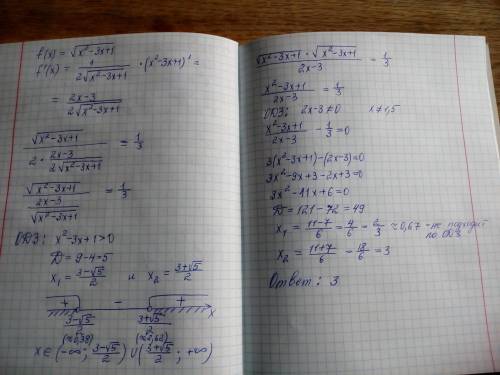 f(x) = √(x²-3x+1)
f'(x) = 1/(2√(x²-3x+1)) · (x²-3x+1)' =
= (2x-3)/(2√(x²-3x+1))
√(x²-3x+1) / (2 · (2x-3)/(2√(x²-3x+1))) = 1/3
√(x²-3x+1) / ((2x-3)/√(x²-3x+1)) = 1/3
ОДЗ: x²-3x+1>0
D = 9-4=5
x₁ = (3-√5)/2 и x₂ = (3+√5)/2
+ - +
(3-√5)/2 (3+√5)/2 x
(≈0,38) (≈2,62)
x∈(-∞; (3-√5)/2) ∪ ((3+√5)/2; +∞)
√(x²-3x+1) · √(x²-3x+1) / (2x-3) = 1/3
(x²-3x+1)/(2x-3) = 1/3
ОДЗ: 2x-3≠0 x≠1,5
(x²-3x+1)/(2x-3) - 1/3 = 0
3(x²-3x+1)-(2x-3)=0
3x²-9x+3-2x+3=0
3x²-11x+6=0
D = 121-72 = 49
x₁ = (11-7)/6 = 4/6 = 2/3 ≈0,67 - не подходит
по ОДЗ
x₂ = (11+7)/6 = 18/6 = 3
Ответ: 3